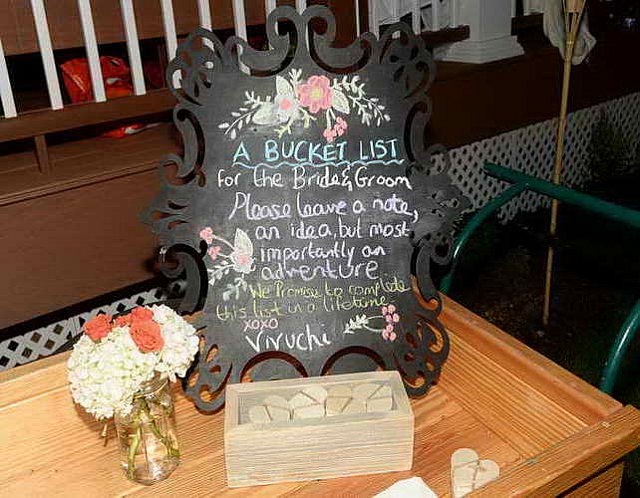 A BUCKET LIST
for the Bride & Groom
Please leave a note,
an idea, but most
importantly an
adventure
We Promise to complete
this list in a lifetime
xoxo
Viruchi